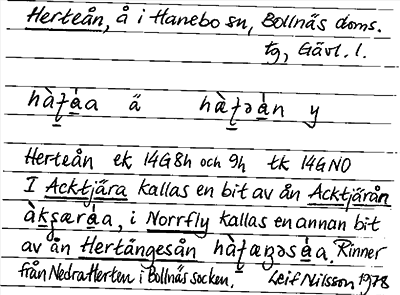 Herteån, å i Hanebo sn, Bollnäs doms.
tg, Gävl. l.
hà̀ʈáa ä hæ̀ʈəán y
Herteån ek, 14G8h och 9h tk 14GNO
I Acktjära kallas en bit av ån Acktjärån
àkʂæráa, i Norrfly kallas en annan bit
av ån Hertängesån hàʈæŋəsáa. Rinner
från Nedra Herten i Bollnäs socken. Leif Nilsson 1978